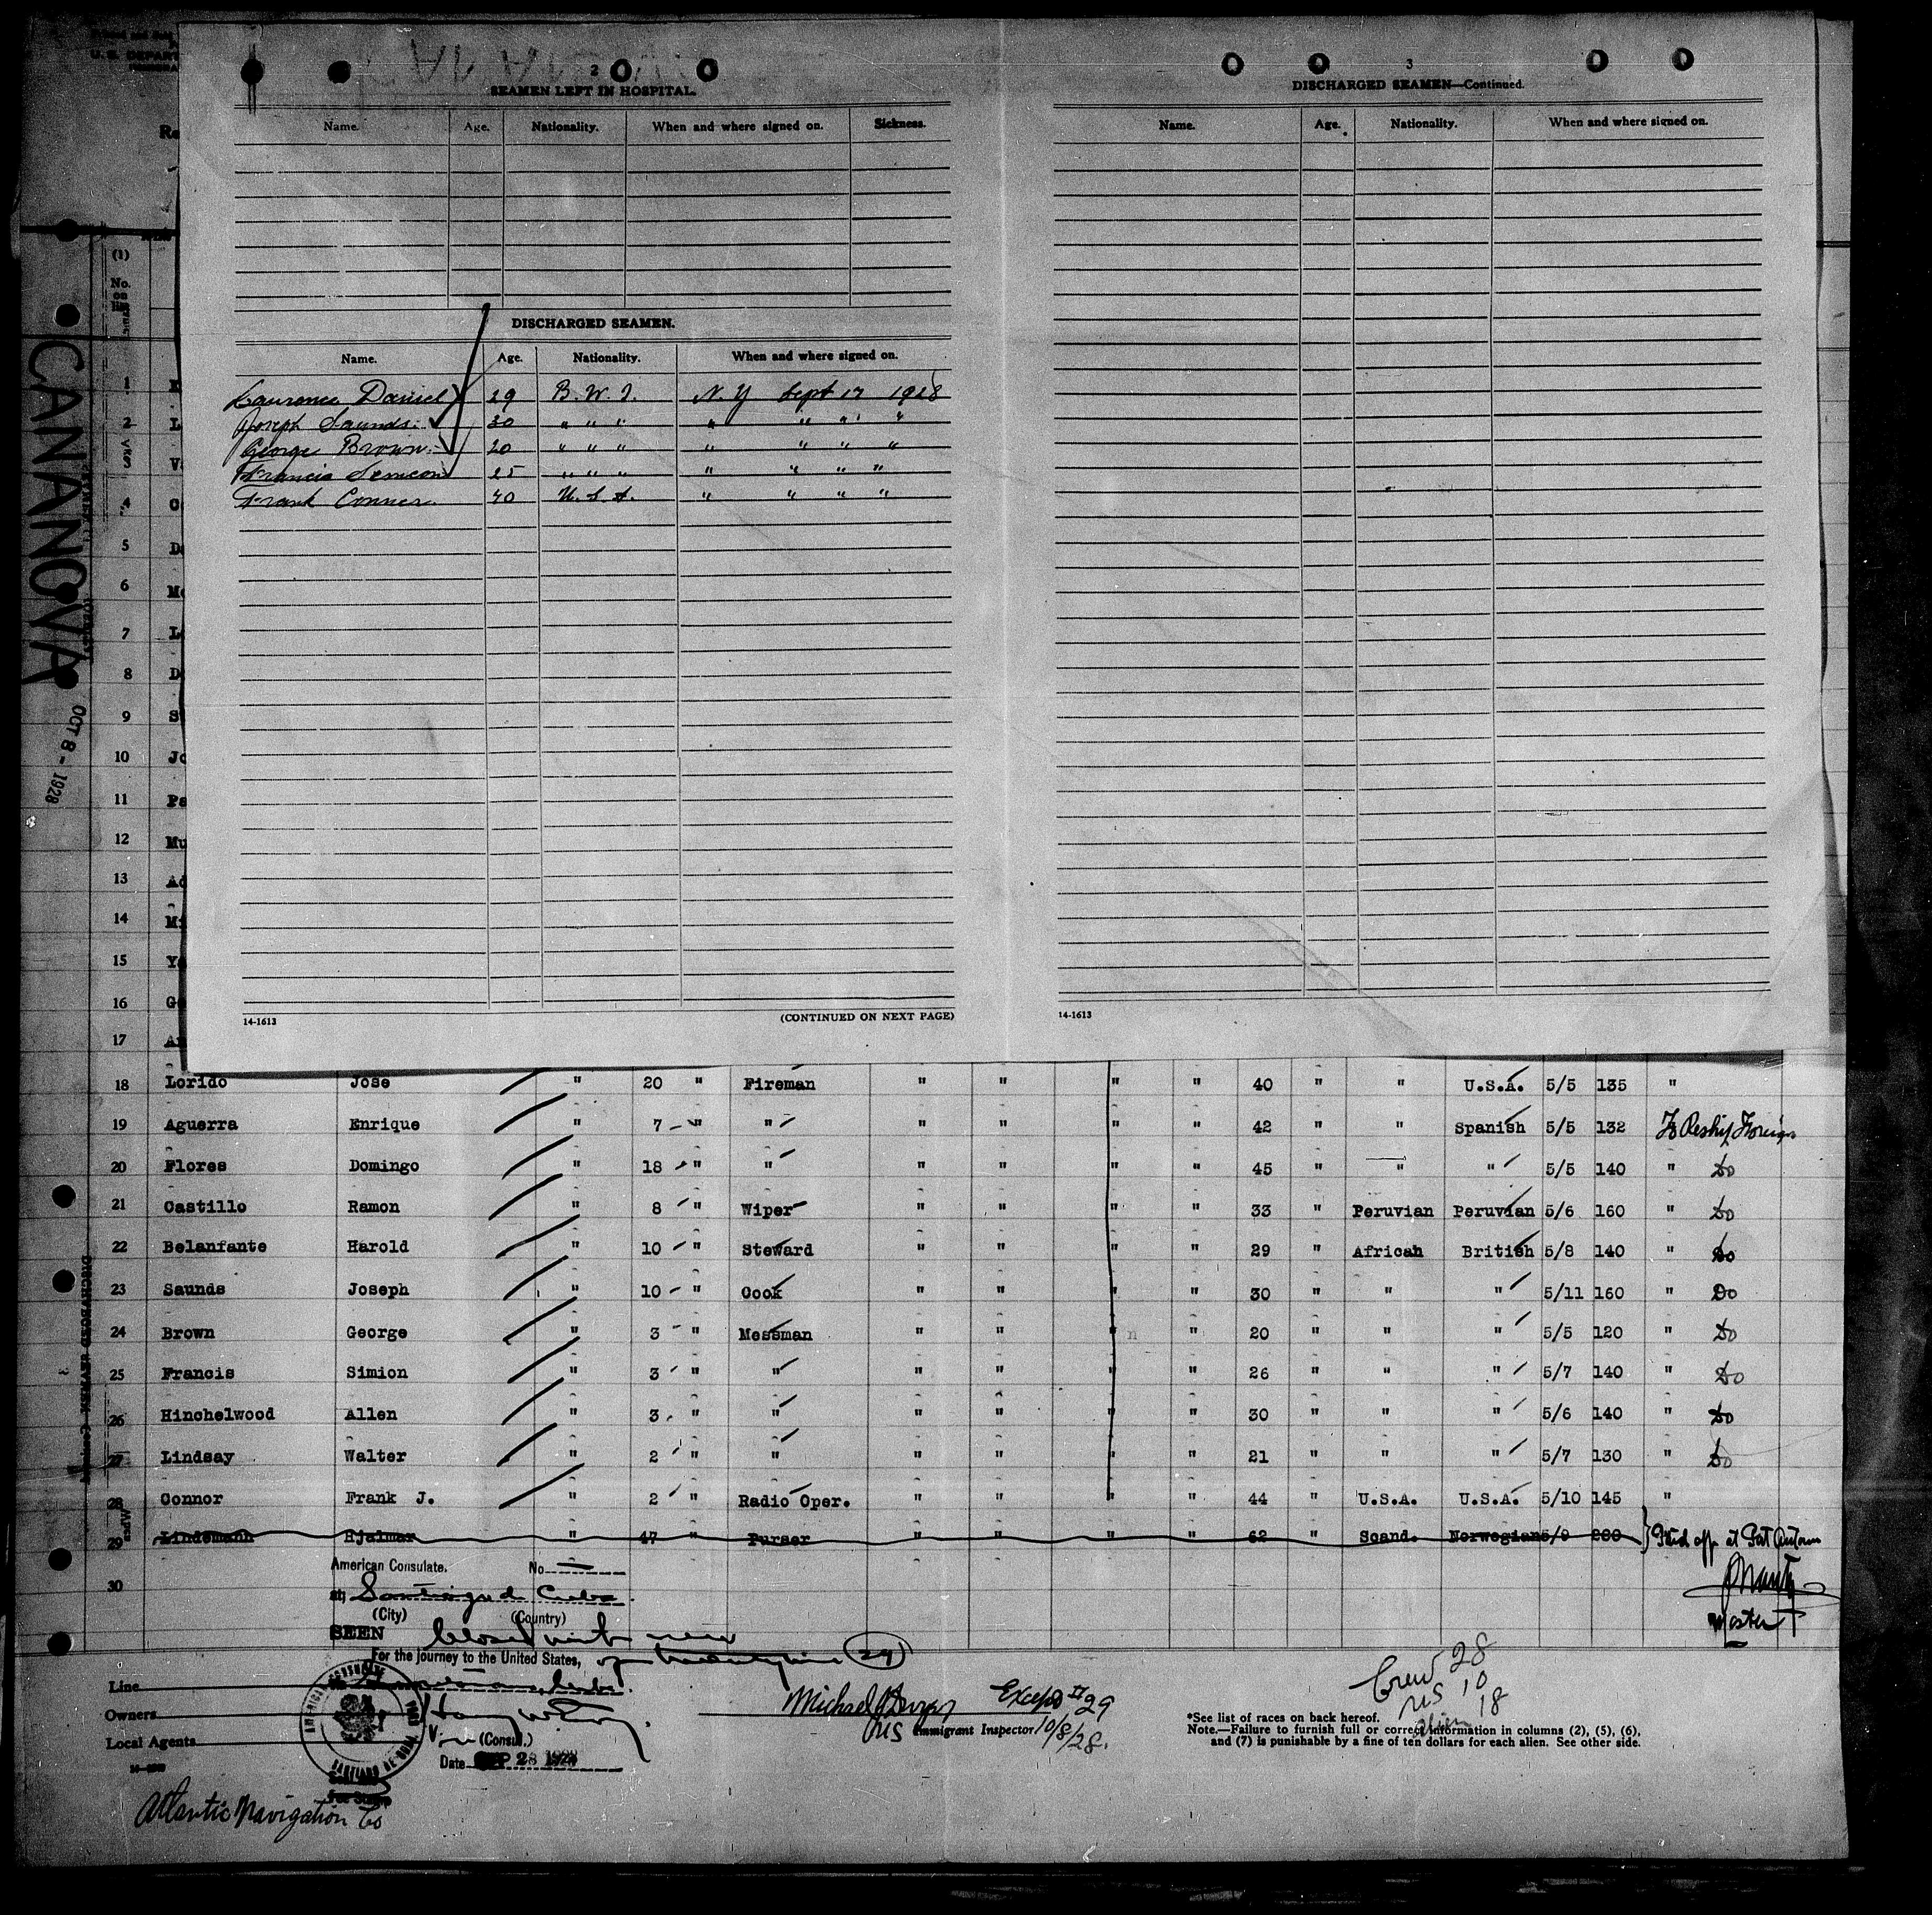 2
SEAMEN LEFT IN HOSPITAL.
Name. Age. Nationality. When and where signed on. Sickness.
DISCHARGED SEAMEN.
Name. Age. Nationality. When and where signed on.
Laurence Daniel 29 B. W. I. N. Y Sept 17 1928
Joseph Saunds. 30 " " " " " " "
George Brown. 20 " " " " " " "
Francis 25 " " " " " " "
Frank Conner 40 U. S. A. " " " "
14-1613
(CONTINUED ON NEXT PAGE)
3
DISCHARGED SEAMEN—Continued.
Name. Age. Nationality. When and where signed on.
14-1613
CANANOVA
OCT 8 - 1928
(1)
No. on list
1
2
3
4
5
6
7
8
9
10
11
12
13
14
15
16
17
18 Lorido Jose " 20 " Fireman " " " " 40 " " U.S.A. 5/5 135 "
19 Aguerra Enrique " 7 " " " " " " 42 " " Spanish 5/5 132 To Reship Foreign
20 Flores Domingo " 18 " " " " " " 45 " " " 5/5 140 " Do
21 Castillo Ramon " 8 " Wiper " " " " 33 " Peruvian Peruvian 5/6 160 " Do
22 Belanfante Harold " 10 " Steward " " " " 29 " African British 5/8 140 " Do
23 Saunds Joseph " 10 " Cook " " " " 30 " " " 5/11 160 " Do
24 Brown George " 3 " Messman " " " " 20 " " " 5/5 120 " Do
25 Francis Simion " 3 " " " " " " 26 " " " 5/7 140 " Do
26 Hinchelwood Allen " 3 " " " " " " 30 " " " 5/6 140 " Do
27 Lindsay Walter " 2 " " " " " " 21 " " " 5/7 130 " Do
28 Connor Frank J. " 2 " Radio Oper. " " " " 44 " U.S.A. U.S.A. 5/10 145 "
29 Lindemann Hjalmar " 47 " Purser " " " " 62 " Scand. Norwegian 5/9 200 Paid off at
30
Master
American Consulate. No
at Santiago de Cuba
(City) (Country)
SEEN
For the journey to the United States,
Line
Owners
Local Agents
(Consul.)
Date SEP 28 1928
Atlantic Navigation Co
Michael
Except #29
US Immigrant Inspector 10/8/28.
Crew 28
US 10
Alien 18
*See list of races on back hereof.
Note.—Failure to furnish full or correct information in columns (2), (5), (6),
and (7) is punishable by a fine of ten dollars for each alien. See other side.